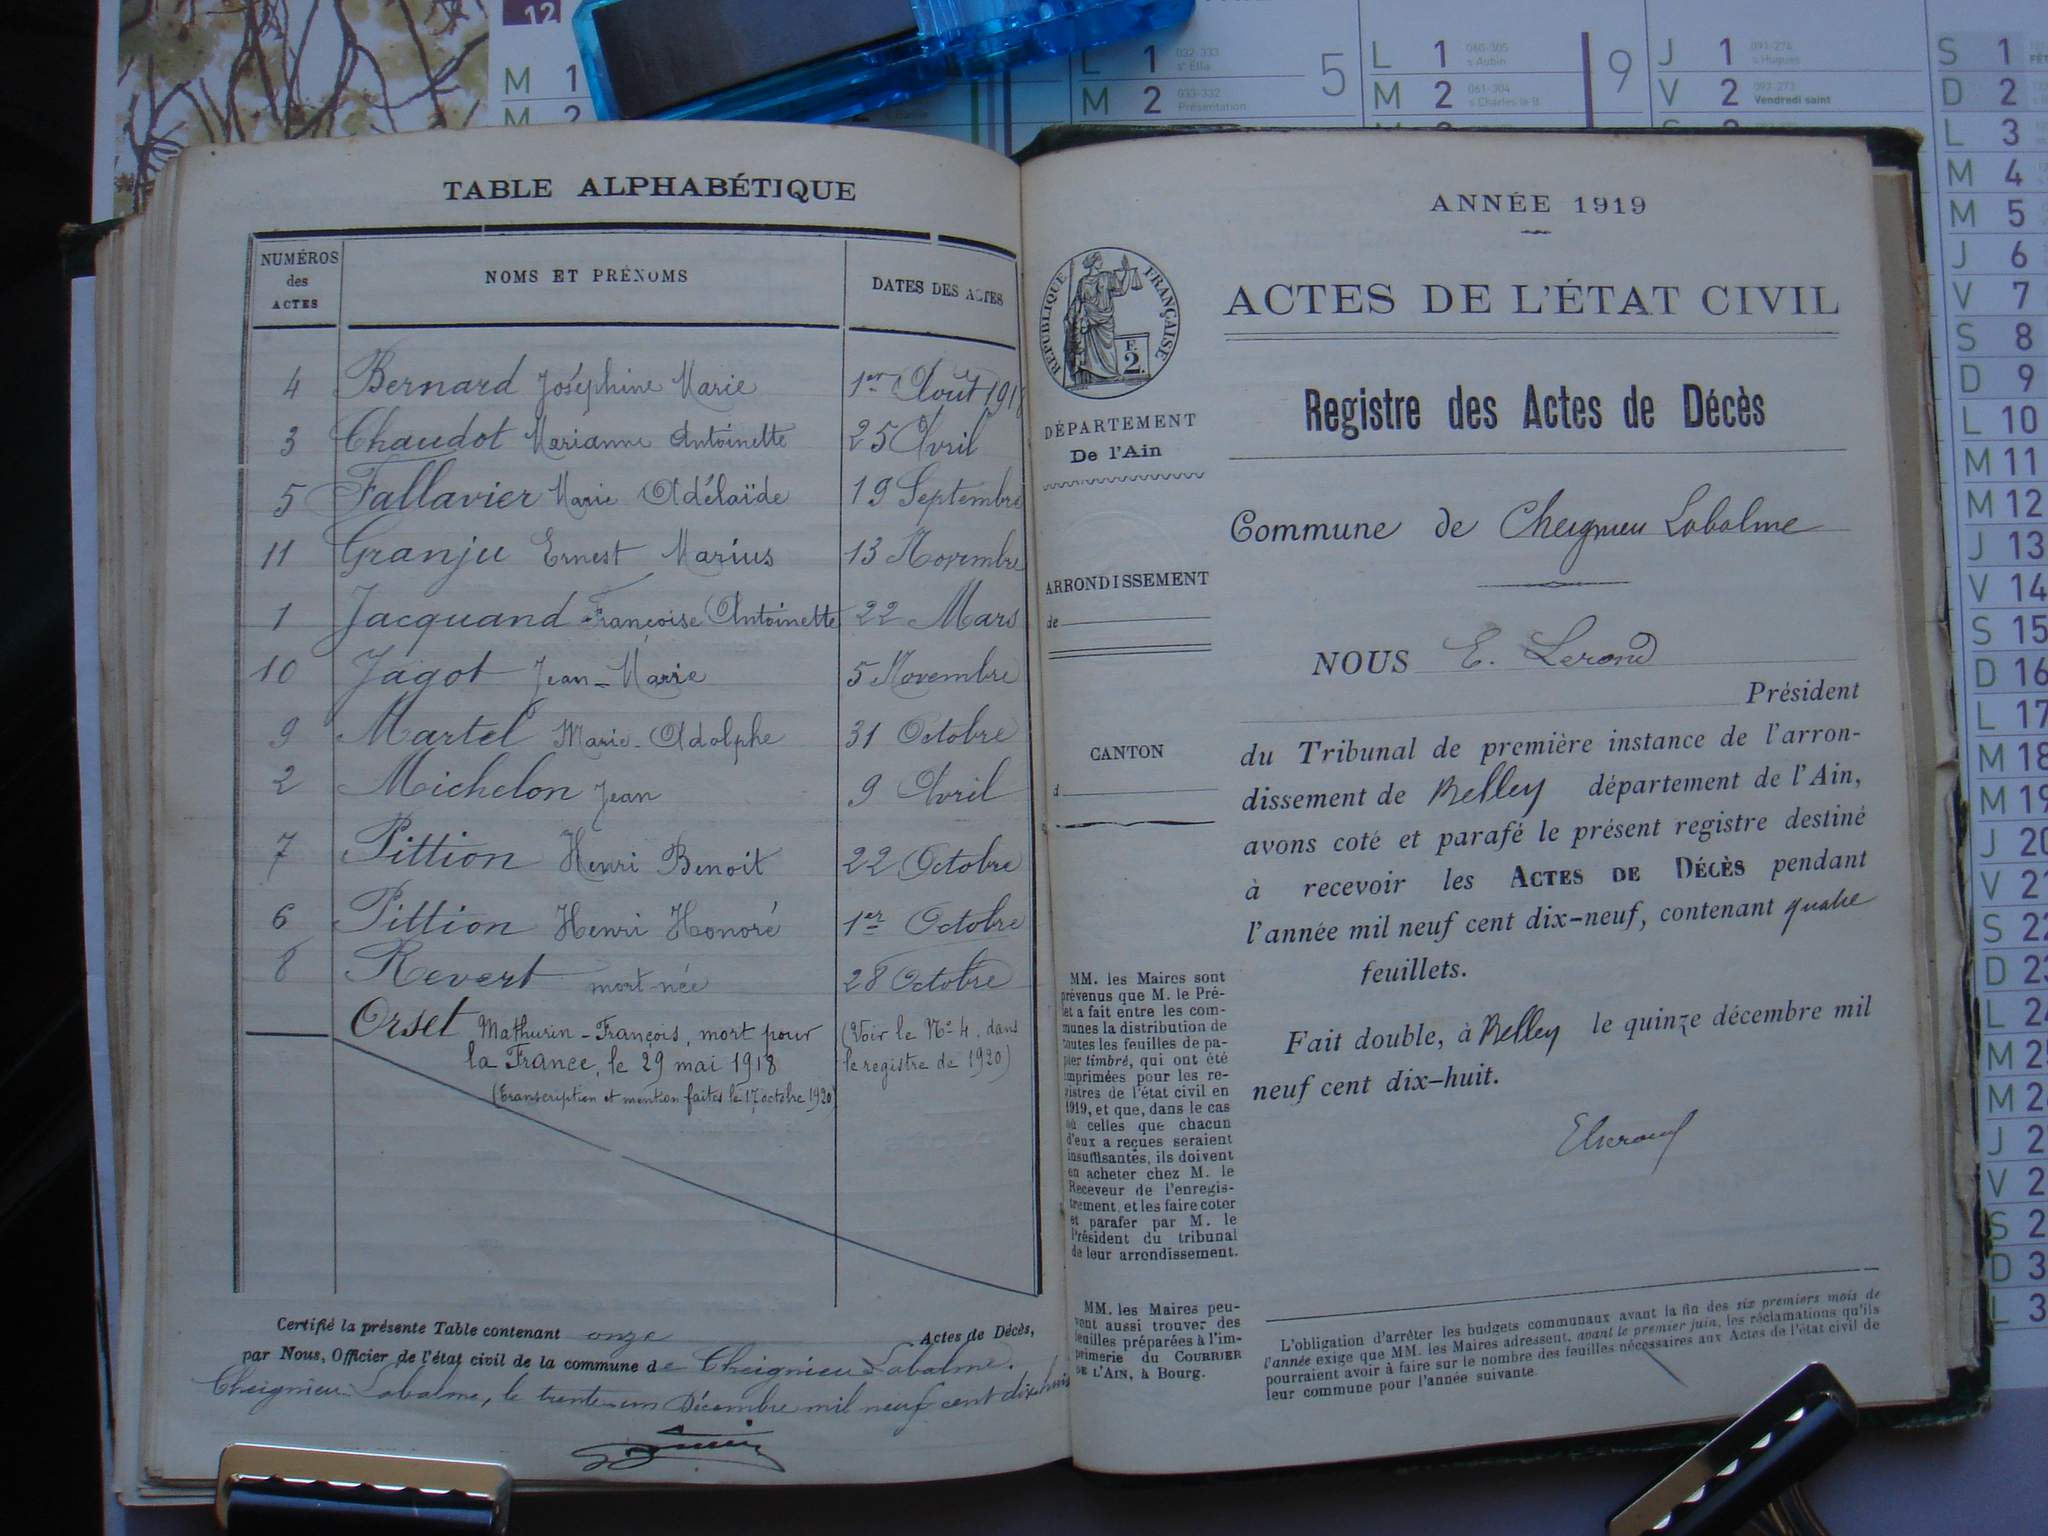 TABLE ALPHABÉTIQUE
NUMÉROS des ACTES
NOMS ET PRÉNOMS
DATES DES ACTES
4 Bernard Joséphine Marie 1er Août 1918
3 Chaudot Marianne Antoinette 25 Avril
5 Fallavier Marie Adélaïde 19 Septembre
11 Granju Ernest Marius 13 Novembre
1 Jacquand Françoise Antoinette 22 Mars
10 Jagot Jean-Marie 5 Novembre
9 Martel Marie-Adolphe 31 Octobre
2 Michelon Jean 9 Avril
7 Pittion Henri Benoit 22 Octobre
6 Pittion Henri Honoré 1er Octobre
8 Revert mort-née 28 Octobre
Orset Mathurin-François, mort pour (Voir le No 4. dans
la France, le 29 mai 1918 le registre de 1920)
(Transcription et mention faites le 17 octobre 1920)
Certifié la présente Table contenant onze Actes de Décès,
par Nous, Officier de l'état civil de la commune de Cheignieu-Labalme.
Cheignieu-Labalme, le trente-un Décembre mil neuf cent dix-huit
ANNÉE 1919
RÉPUBLIQUE FRANÇAISE
F.
2.
ACTES DE L'ÉTAT CIVIL
Registre des Actes de Décès
DÉPARTEMENT
De l'Ain
Commune de Cheignieu Labalme
ARRONDISSEMENT
de
NOUS E. Lerond
Président
du Tribunal de première instance de l'arron-
dissement de Belley département de l'Ain,
avons coté et parafé le présent registre destiné
à recevoir les ACTES DE DÉCÈS pendant
l'année mil neuf cent dix-neuf, contenant quatre
feuillets.
Fait double, à Belley le quinze décembre mil
neuf cent dix-huit.
CANTON
d
MM. les Maires sont
prévenus que M. le Pré-
fet a fait entre les com-
munes la distribution de
toutes les feuilles de pa-
pier timbré, qui ont été
imprimées pour les re-
gistres de l'état civil en
1919, et que, dans le cas
où celles que chacun
d'eux a reçues seraient
insuffisantes, ils doivent
en acheter chez M. le
Receveur de l'enregis-
trement, et les faire coter
et parafer par M. le
Président du tribunal
de leur arrondissement.
MM. les Maires peu-
vent aussi trouver des
feuilles préparées à l'im-
primerie du COURRIER
DE L'AIN, à Bourg.
L'obligation d'arrêter les budgets communaux avant la fin des six premiers mois de
l'année exige que MM. les Maires adressent, avant le premier juin, les réclamations qu'ils
pourraient avoir à faire sur le nombre des feuilles nécessaires aux Actes de l'état civil de
leur commune pour l'année suivante.
12
M 1
M 2
L 1 032-333 se Ella
M 2 033-332 Présentation
5
L 1 060-305 s Aubin
M 2 061-304 s Charles le B.
9
J 1 091-274 s Hugues
V 2 092-273 Vendredi saint
S 1
D 2
L 3
M 4
M 5
J 6
V 7
S 8
D 9
L 10
M 11
M 12
J 13
V 14
S 15
D 16
L 17
M 18
M 19
J 20
V 2
S 22
D 23
L 2
M 2
M 2
J 2
V 2
S 2
D 3
L 3